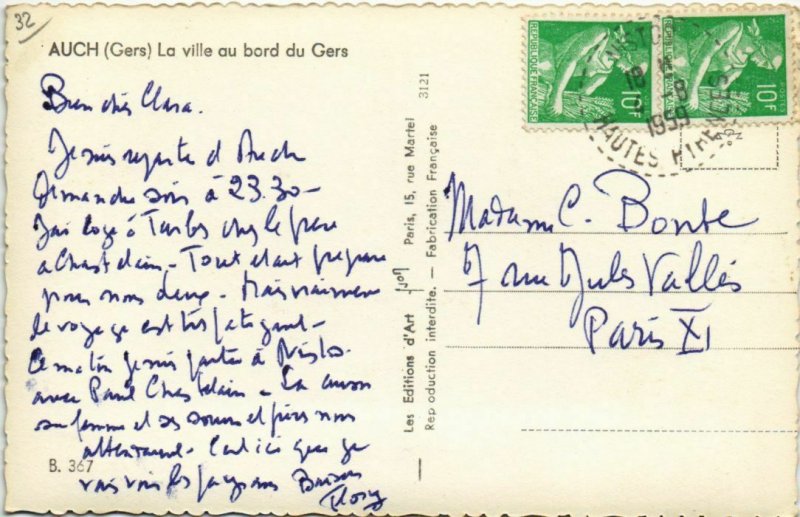 32
AUCH (Gers) La ville au bord du Gers
Bien chère Clara.
Je suis repartie d'Auch
Dimanche soir à 23.30 –
J'ai logé à Tarbes chez le frère
à Chastelain – Tout était préparé
pour nous deux – Mais vraiment
le voyage est très fatigant –
Ce matin je suis partie à Nistos
avec Paul Chastelain – La
sa femme et ses soeurs et frères nous
attendaient – C'est ici que je
vais voir les paysans Baisers
B. 367
Les Editions d'Art Paris, 15, rue Martel 3121
Reproduction interdite. — Fabrication Française
REPUBLIQUE FRANÇAISE
10F
REPUBLIQUE FRANÇAISE
POSTES
10F
NISTOS
18
1959
HAUTES PYRENEES
Madame C. Bonte
7 rue Jules Vallès
Paris XI